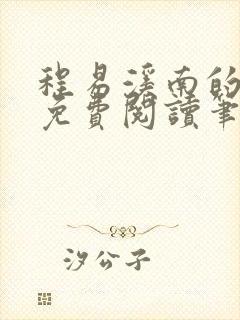 程易滢南的
免費閱讀筆
汐公子